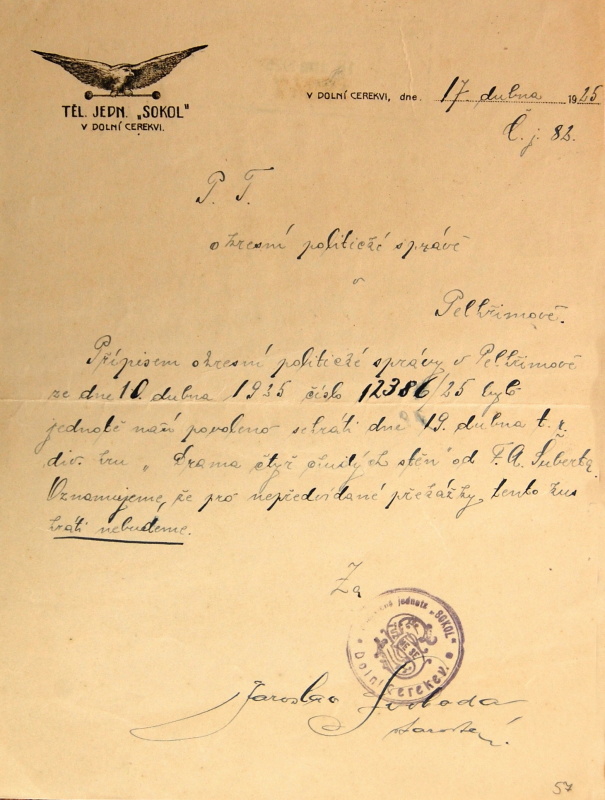 TĚL. JEDN. „SOKOL"
V DOLNÍ CEREKVI.
V DOLNÍ CEREKVI, dne 17 dubna 1925
Č. j. 82.
P. T.
okresní politické správě
v
Pelhřimově.
Přípisem okresní politické správy v Pelhřimově
ze dne 10. dubna 1925 číslo 12386/25 bylo
jednotě naší povoleno sehráti dne 19. dubna t. r.
div. hru „Drama čtyř chudých stěn" od F. A. Šuberta.
Oznamujeme, že pro nepředvídané překážky tento kus
hráti nebudeme.
Za
jednota „SOKOL"
Dolní Cerekev.
Jaroslav Svoboda
starosta.
57